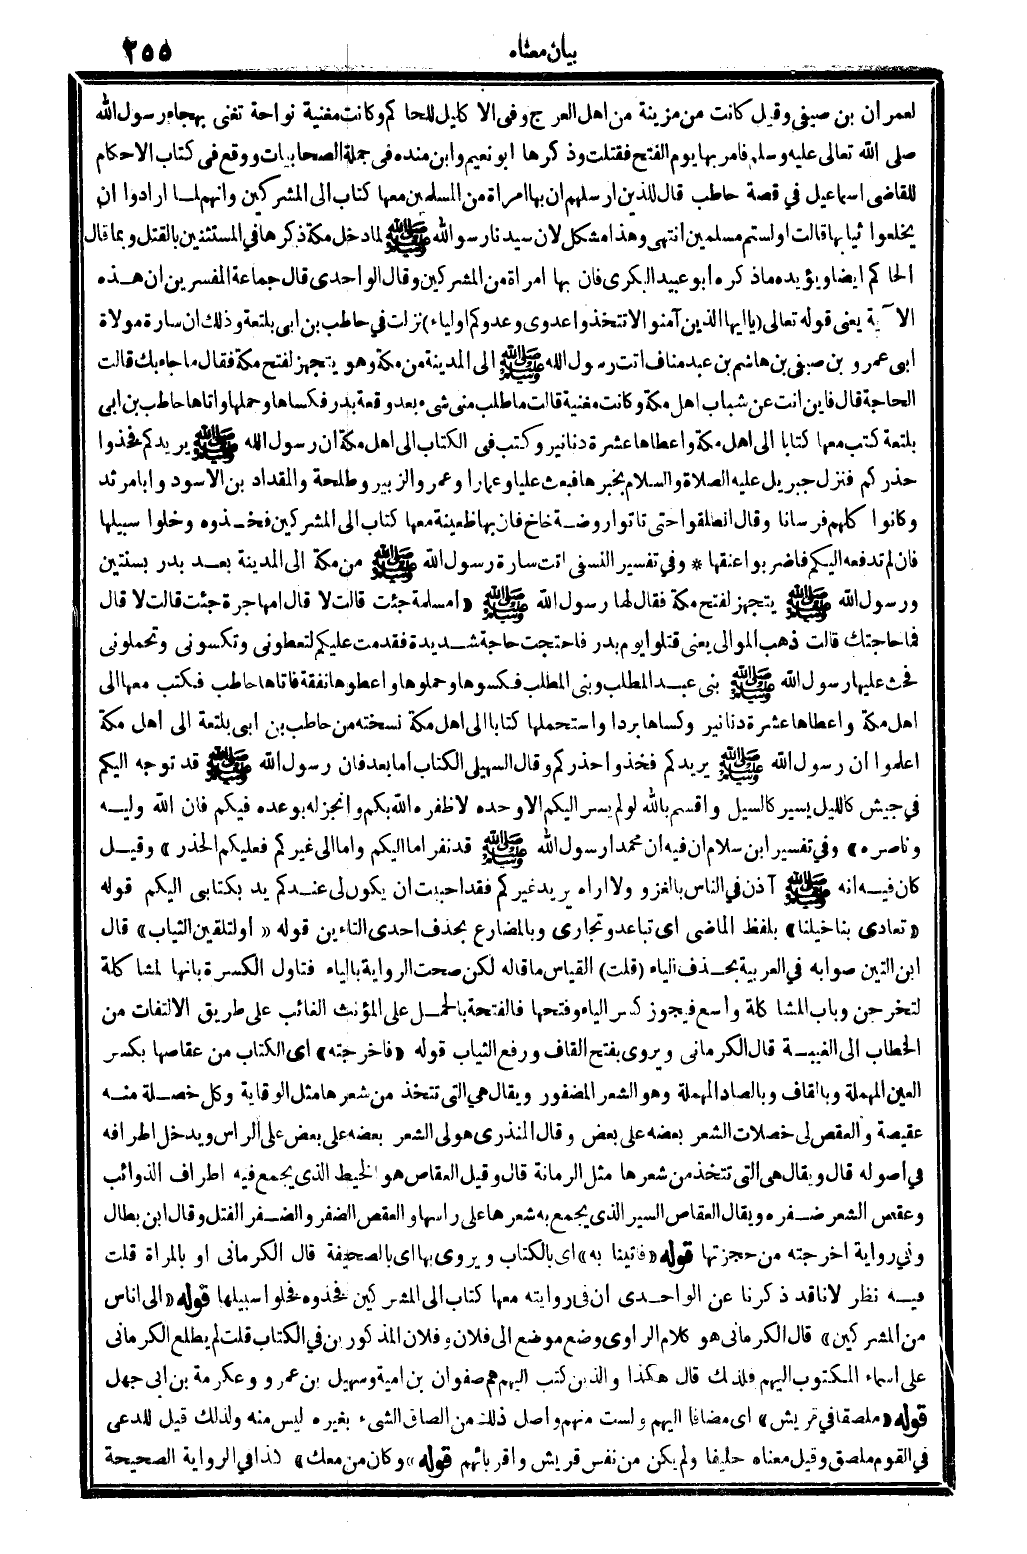 بيان معناه
٢٥٥
لعمران بن صيفي وقيل كانت من مزينة من اهل العرج وفى الاكليل للحاكم وكانت مغنية نواحة تغنى بهجاء رسول الله
صلى الله تعالى عليه وسلم فامر بها يوم الفتح فقتلت وذكرها ابو نعيم وابن منده فى جملة الصحابيات ووقع فى كتاب الاحكام
للقاضى اسماعيل في قصة حاطب قال للذين ارسلهم ان بها امراة من المسلمين معها كتاب الى المشركين وانهم لما ارادوا ان
يخلعوا ثيابها قالت اولستم مسلمين انتهى وهذا مشكل لان سيدنا رسو الله ﷺ لما دخل مكة ذكرها في المستثنين بالقتل وبما قال
الحاكم ايضا ويؤيده ماذكره ابو عبيد البكرى فان بها امراة من المشركين وقال الواحدى قال جماعة المفسرين ان هذه
الآية يعنى قوله تعالى (يا ايها الذين آمنوا لاتتخذوا عدوى وعدوكم اولياء) نزلت في حاطب بن ابى بلتعة وذلك ان سارة مولاة
ابى عمرو بن صيفى بن هاشم بن عبد مناف اتت رسول الله ﷺ الى المدينة من مكة وهو يتجهز لفتح مكة فقال ماجاء بك قالت
الحاجة قال فاين انت عن شباب اهل مكة وكانت مغنية قالت ماطلب منى شىء بعد وقعة بدر فكساها وحملها واتاها حاطب بن ابى
بلتعة كتب معها كتابا الى اهل مكة واعطاها عشرة دنانير وكتب فى الكتاب الى اهل مكة ان رسول الله ﷺ يريدكم فخذوا
حذركم فنزل جبريل عليه الصلاة والسلام بخبرها فبعث عليا وعمارا وعمر والزبير وطلحة والمقداد بن الاسود وابا مرثد
وكانوا كلهم فرسانا وقال انطلقوا حتى تاتوا روضة خاخ فان بها ظعينة معها كتاب الى المشركين فخذوه وخلوا سبيلها
فان لم تدفعه اليكم فاضربوا عنقها * وفي تفسير النسفى اتت سارة رسول الله ﷺ من مكة الى المدينة بعد بدر بسنتين
ورسول الله ﷺ يتجهز لفتح مكة فقال لها رسول الله ﷺ «امسلمة جئت قالت لا قال امهاجرة جئت قالت لا قال
فما حاجتك قالت ذهب الموالى يعنى قتلوا يوم بدر فاحتجت حاجة شديدة فقدمت عليكم لتعطونى وتكسونى وتحملونى
فحث عليها رسول الله ﷺ بنى عبد المطلب وبنى المطلب فكسوها وحملوها واعطوها نفقة فاتاها حاطب فكتب معها الى
اهل مكة واعطاها عشرة دنانير وكساها بردا واستحملها كتابا الى اهل مكة نسخته من حاطب بن ابى بلتعة الى اهل مكة
اعلموا ان رسول الله ﷺ يريدكم فخذوا حذركم وقال السهيلى الكتاب اما بعد فان رسول الله ﷺ قد توجه اليكم
في جيش كالليل يسير كالسيل واقسم بالله لو لم يسر اليكم الا وحده لاظفره الله بكم وانجز له بوعده فيكم فان الله وليه
وناصره» وفي تفسير ابن سلام ان فيه ان محمدا رسول الله ﷺ قد نفر اما اليكم واما الى غيركم فعليكم الحذر» وقيل
كان فيه انه ﷺ آذن في الناس بالغزو ولا اراه يريد غيركم فقد احببت ان يكون لى عندكم يد بكتابى اليكم قوله
«تعادى بنا خيلنا» بلفظ الماضى اى تباعد وتجارى وبالمضارع بحذف احدى التاءين قوله «اولتلقين الثياب» قال
ابن التين صوابه في العربية بحذف الياء (قلت) القياس ماقاله لكن صحت الرواية بالياء فتاول الكسرة بانها لمشاكلة
لتخرجن وباب المشاكلة واسع فيجوز كسر الياء وفتحها فالفتحة بالحمل على المؤنث الغائب على طريق الالتفات من
الخطاب الى الغيبة قال الكرمانى ويروى بفتح القاف ورفع الثياب قوله «فاخرجته» اى الكتاب من عقاصها بكسر
العين المهملة وبالقاف وبالصاد المهملة وهو الشعر المضفور ويقال هي التى تتخذ من شعرها مثل الوقاية وكل خصلة منه
عقيصة والعقص لى خصلات الشعر بعضه على بعض وقال المنذرى هو لى الشعر بعضه على بعض على الراس ويدخل اطرافه
في اصوله قال ويقال هى التى تتخذ من شعرها مثل الرمانة قال وقيل العقاص هو الخيط الذى يجمع فيه اطراف الذوائب
وعقص الشعر ضفره ويقال العقاص السير الذى يجمع به شعرها على راسها والعقص الضفر والضفر الفتل وقال ابن بطال
وفي رواية اخرجته من حجزتها قوله «فاتينا به» اى بالكتاب ويروى بها اى بالصحيفة قال الكرمانى او بالمراة قلت
فيه نظر لانا قد ذكرنا عن الواحدى ان فى روايته معها كتاب الى المشركين فخذوه فخلوا سبيلها قوله «الى اناس
من المشركين» قال الكرمانى هو كلام الراوى وضع موضع الى فلان وفلان المذكورين في الكتاب قلت لم يطلع الكرمانى
على اسماء المكتوب اليهم فلذلك قال هكذا والذين كتب اليهم هم صفوان بن امية وسهيل بن عمرو وعكرمة بن ابى جهل
قوله «ملصقا في قريش» اى مضافا اليهم ولست منهم واصل ذلك من الصاق الشىء بغيره ليس منه ولذلك قيل للدعى
في القوم ملصق وقيل معناه حليفا ولم يكن من نفس قريش واقربائهم قوله «وكان من معك» كذا في الرواية الصحيحة